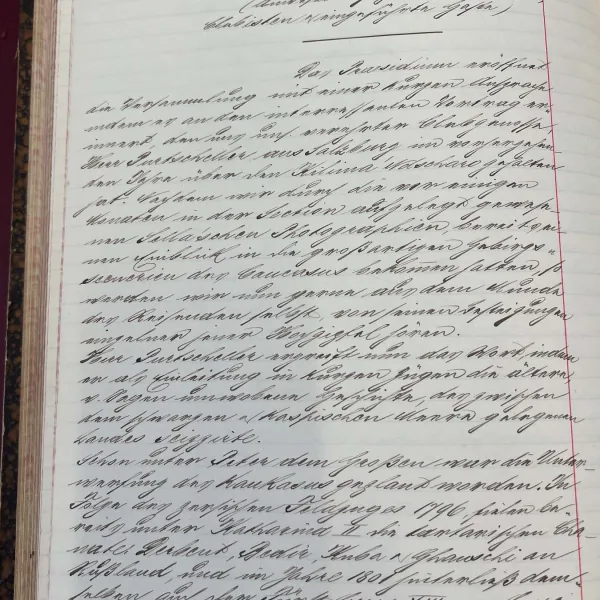 Clubisten & eingeführte Gäste)
Das Praesidium eröffnet
die Versammlung mit einer kurzen Ansprache
indem er an den interessanten Vortrag er-
innert, den uns unser verehrter Clubgenosse,
Herr Purtscheller aus Salzburg im vorvergangenen
den Jahre über den Kilima'Ndscharo gehalten
hat. Nachdem wir durch die vor einigen
Monaten in der Section aufgelegt gewese-
nen Sella'schen Photographien bereits ei-
nen Einblick in die großartigen Gebirgs-
scenerien des Caucasus bekommen hatten, so
werden wir nun gerne aus dem Munde
des Reisenden selbst, von seinen Besteigungen
einzelner jener Hochgipfel hören.
Herr Purtscheller ergreift nun das Wort, indem
er als Einleitung in kurzen Zügen die ältere,
v. Sagen umwobene Geschichte, des zwischen
dem schwarzen & Kaspischen Meere gelegenen
Landes skizzirte.
Schon unter Peter dem Großen war die Unter-
werfung des Kaukasus geplant worden. In
Folge des persischen Feldzuges 1796, fielen be-
reits unter Katharina II die tartarischen Cha-
nate Derbent Kuba & an
Rußland, und im Jahre 180 hinterließ dem-
selben auf dem